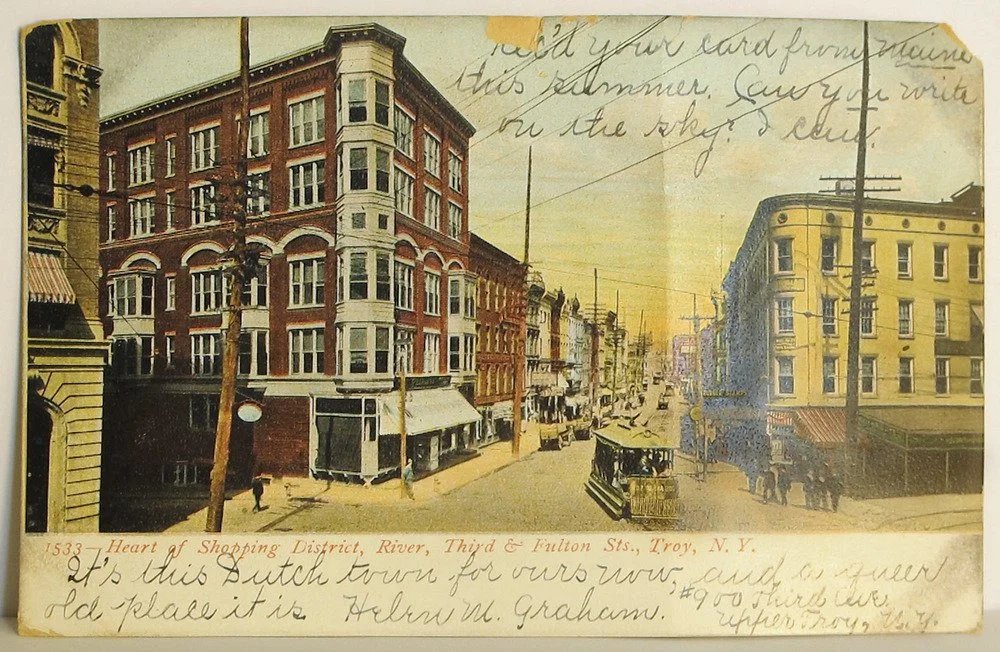 Rec'd your card from Maine
this summer. Can you write
on the sky? I can.
1533 - Heart of Shopping District, River, Third & Fulton Sts., Troy, N. Y.
It's this Dutch town for ours now, and a queer
old place it is. Helen M. Graham.
#900 Third Ave,
Upper Troy, N.Y.